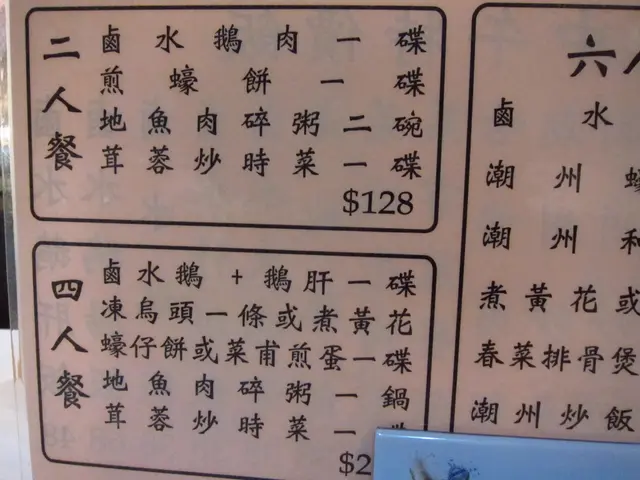 二人餐
鹵水鵝肉一碟
煎蠔餅一碟
地魚肉碎粥二碗
茸蓉炒時菜一碟
$128
四人餐
鹵水鵝+鵝肝一碟
凍烏頭一條或煮黃花
蠔仔餅或菜甫煎蛋一碟
地魚肉碎粥一鍋
茸蓉炒時菜一
$2
六人
鹵水
潮州蠔
潮州
煮黃花或
春菜排骨煲
潮州炒飯